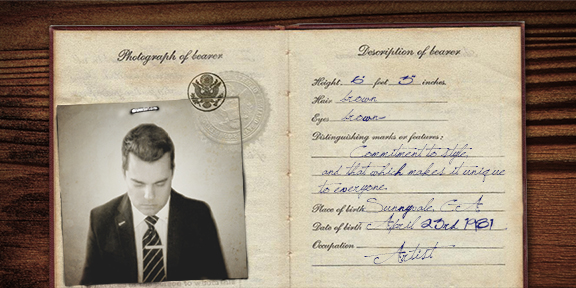 Photograph of bearer
Description of bearer
Height 6 feet 3 inches
Hair brown
Eyes brown
Distinguishing marks or features:
Commitment to style,
and that which makes it unique
to everyone.
Place of birth Sunnyvale, CA
Date of birth April 23rd 1981
Occupation
Artist